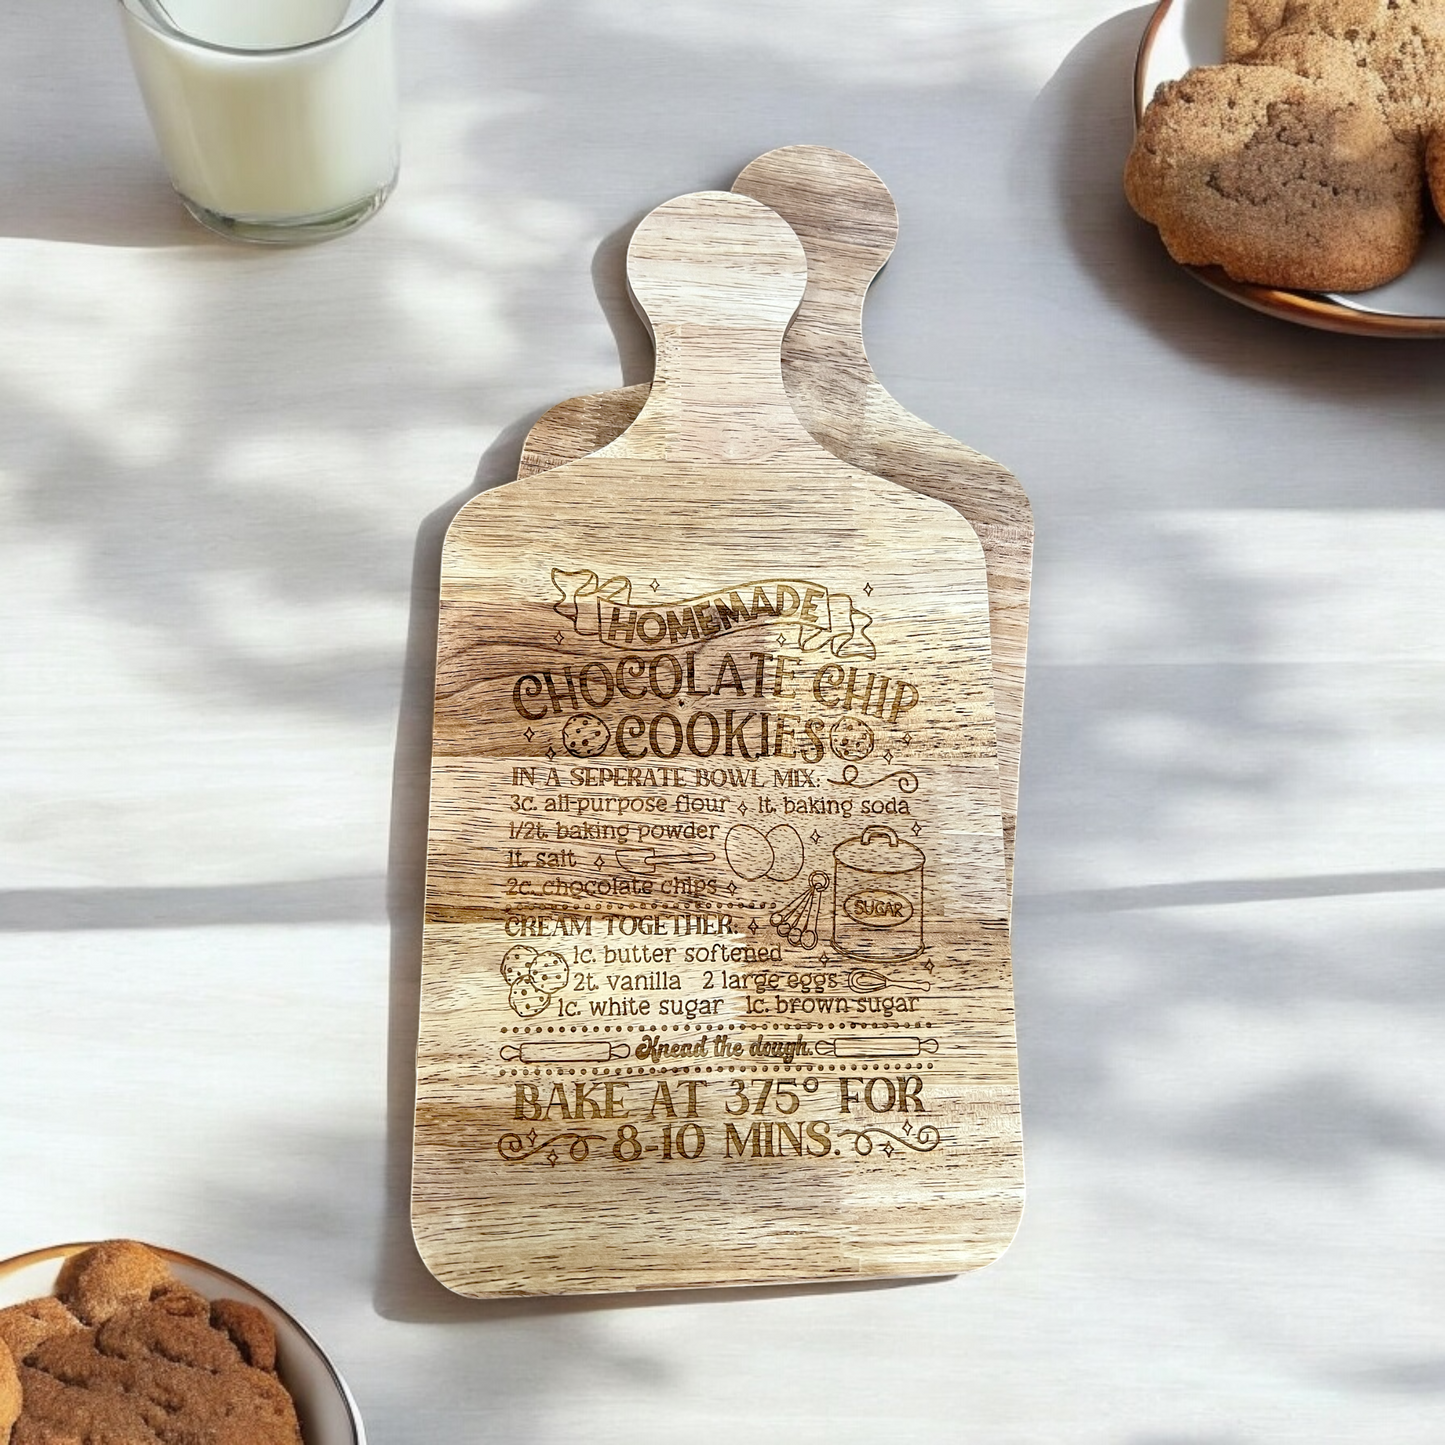 HOMEMADE
CHOCOLATE CHIP
COOKIES
IN A SEPERATE BOWL MIX:
3c. all-purpose flour 1t. baking soda
1/2t. baking powder
1t. salt
2c. chocolate chips
SUGAR
CREAM TOGETHER:
1c. butter softened
2t. vanilla 2 large eggs
1c. white sugar 1c. brown sugar
Knead the dough.
BAKE AT 375° FOR
8-10 MINS.